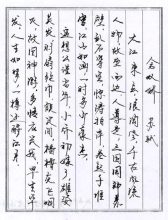 念奴娇 苏轼
大江东去浪淘尽千古风流
人物故垒西边人道是三国周郎赤
壁乱石穿空惊涛拍岸卷起千堆
雪江山如画一时多少豪杰
遥想公瑾当年小乔初嫁了雄姿
英发羽扇纶巾谈笑间樯橹灰飞烟
灭故国神游多情应笑我早生华
发人生如梦一樽还酹江月